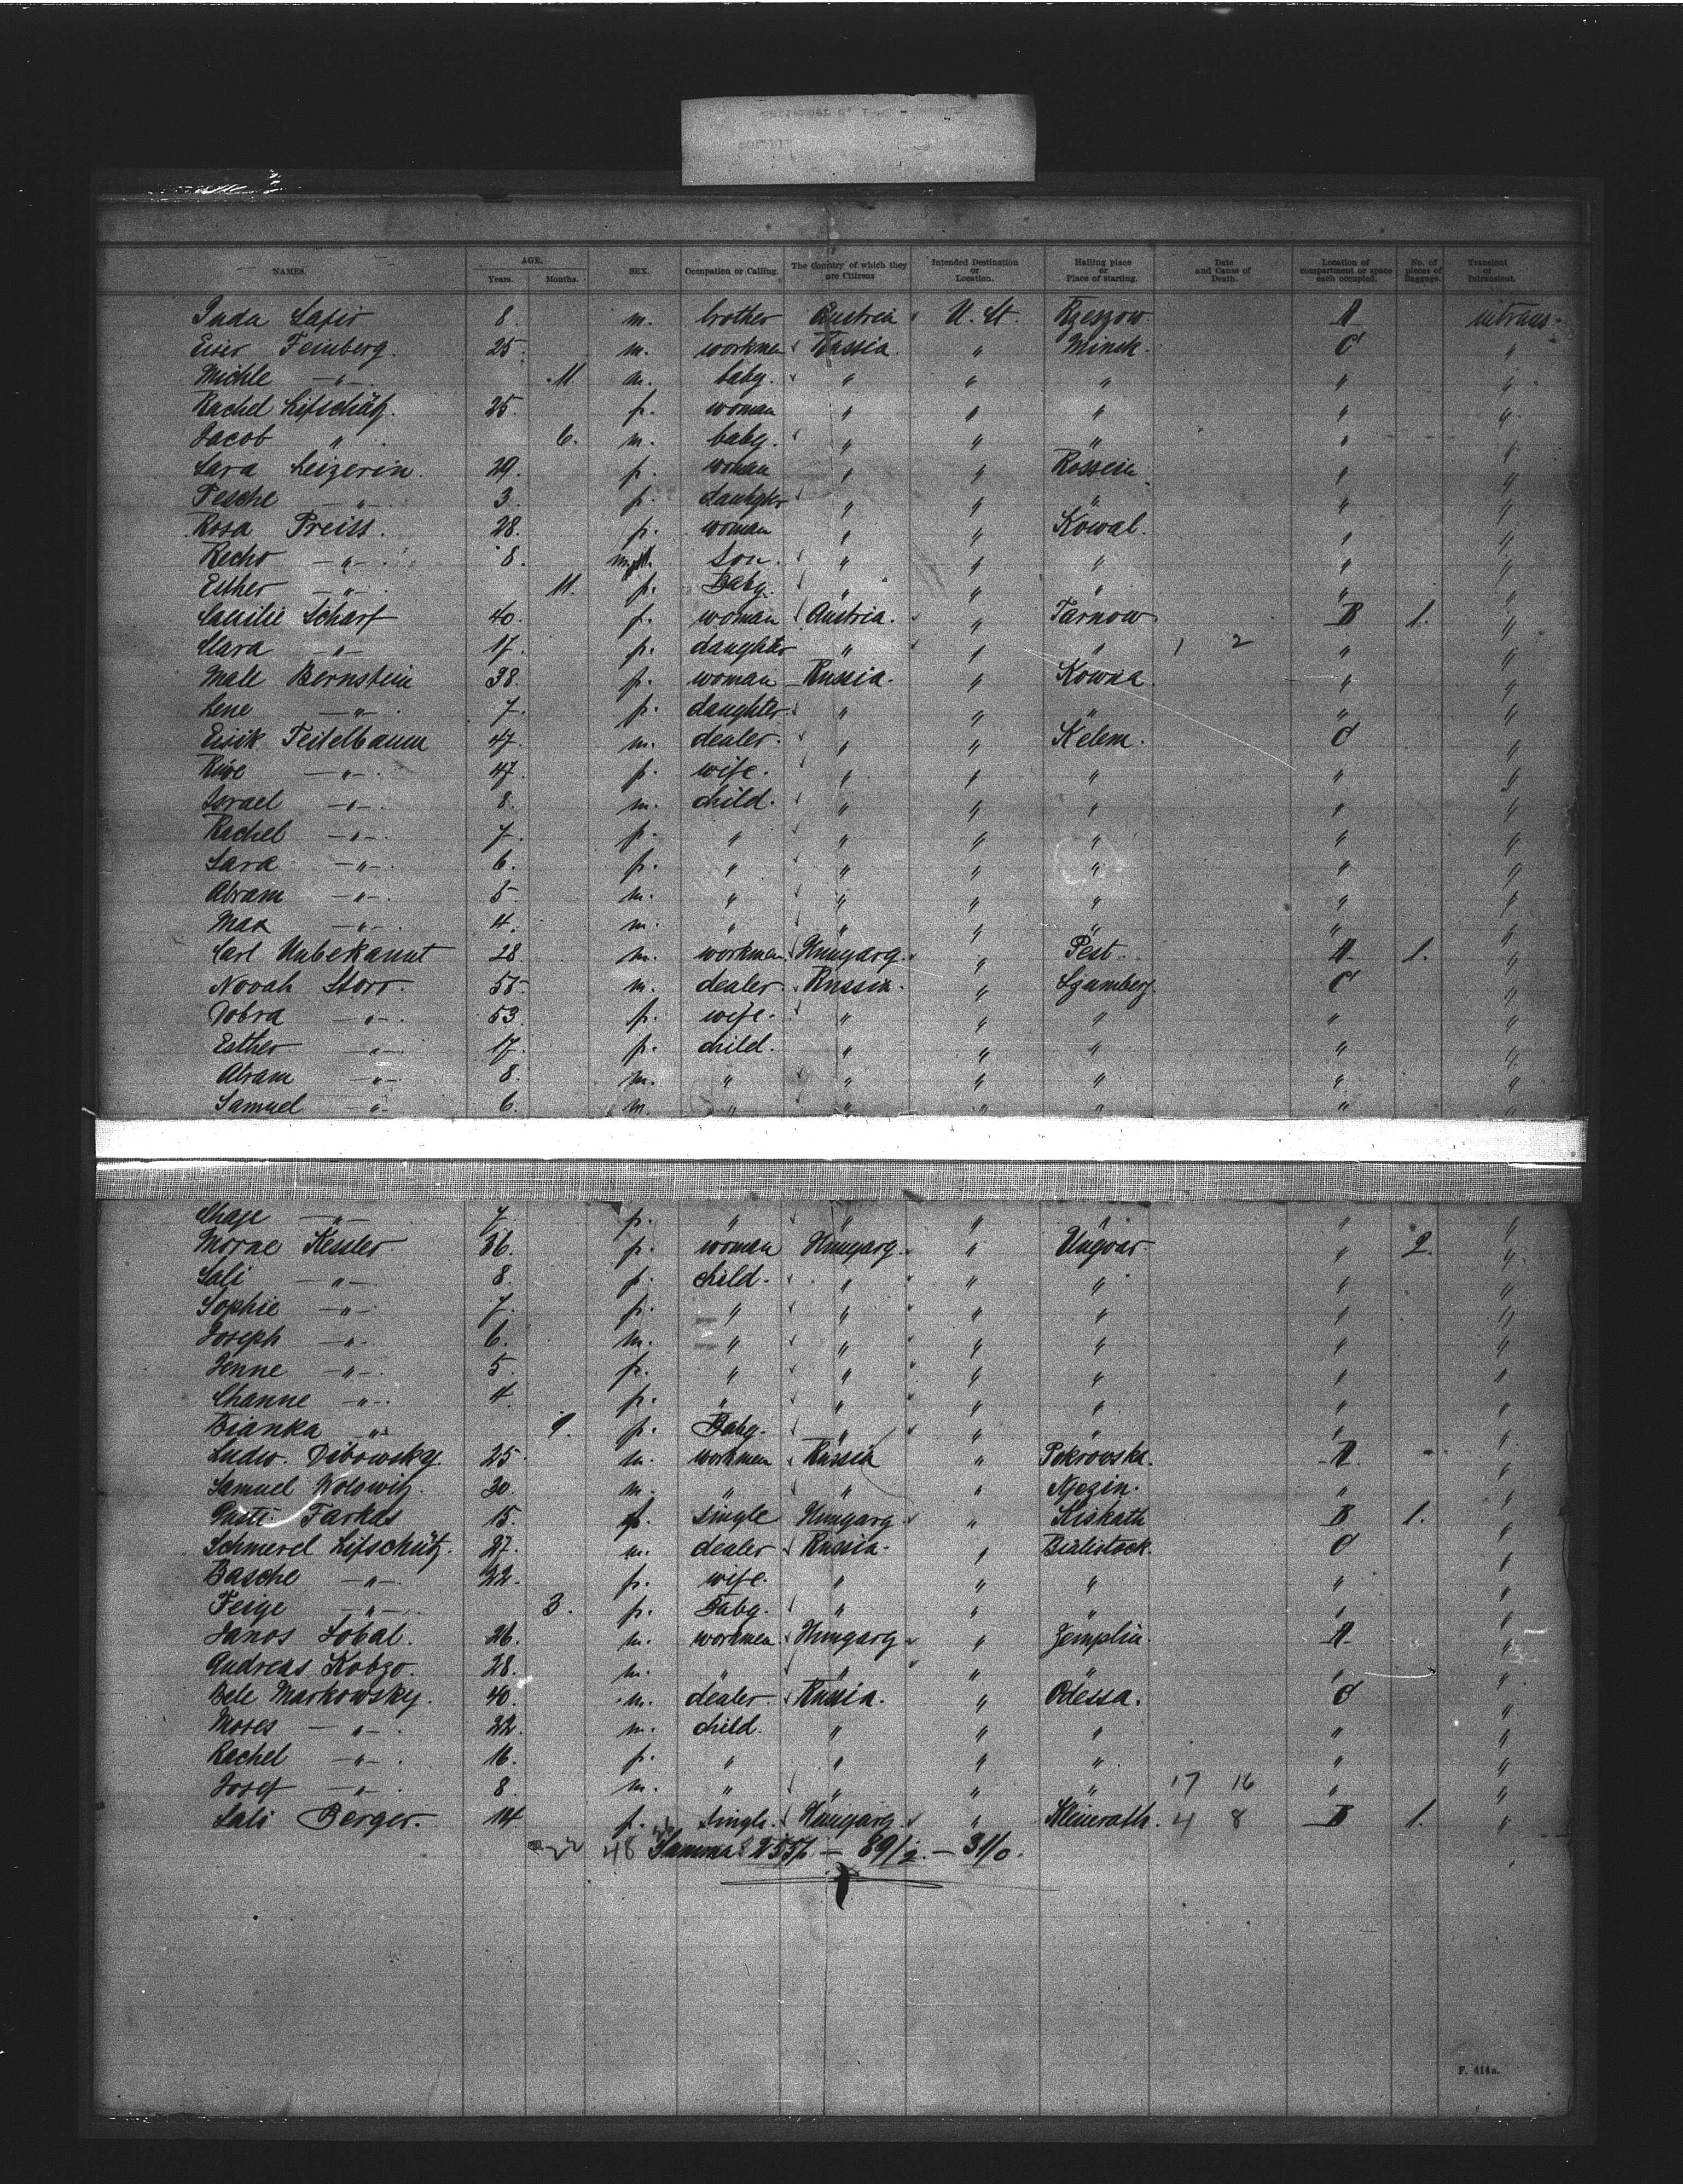 NAMES. AGE. Years. Months. SEX. Occupation or Calling. The Country of which they are Citizens Intended Destination or Location. Hailing place or Place of starting. Date and Cause of Death. Location of compartment or space each occupied. No. of pieces of Baggage. Transient or Intransient.
Juda Safir 8. m. brother Austria U. St. Rzeszow. A intrans.
Eiser Feinberg 25. m. workmen Russia. " Minsk. C "
Michle —"— 11. m. baby. " " " " "
Rachel Lifschütz. 25. f. woman " " " " "
Jacob " 6. m. baby. " " " " "
Sara Leizerin. 29. f. woman " " Rossein " "
Pesche —"— 3. f. daughter " " " " "
Rosa Preiss. 28. f. woman " " Kowal. " "
Recho —"— 8. m. son. " " " " "
Esther —"— 11. f. Baby. " " " " "
Caecilie Scharf 40. f. woman Austria. " Tarnow B 1. "
Clara —"— 17. f. daughter " " " 1 2 " "
Male Bernstein 38. f. woman Russia. " Kowna. " "
Lene —"— 7. f. daughter " " " " "
Eisik Teitelbaum 47. m. dealer. " " Kelem. C "
Riwe —"— 47. f. wife. " " " " "
Israel —"— 8. m. child. " " " " "
Rachel —"— 7. f. " " " " " "
Sara —"— 6. f. " " " " " "
Abram —"— 5 m. " " " " " "
Max —"— 4. m. " " " " " "
Carl Unbekannt 28. m. workmen. Hungary. " Pest. A 1. "
Novah Storr. 55. m. dealer. Russia. " Szamberg. C "
Dobra —"— 53. f. wife. " " " " "
Esther —"— 17. f. child. " " " " "
Abram —"— 8. m. " " " " " "
Samuel —"— 6. m. " " " " " "
Chaje —"— 7. f. " " " " " "
Morne Kessler 36. f. woman Hungary. " Ungvar. " 2. "
Sali —"— 8. f. child. " " " " "
Sophie —"— 7. f. " " " " " "
Joseph —"— 6. m. " " " " " "
Jenne —"— 5. f. " " " " " "
Channe —"— 4. f. " " " " " "
Bianka —"— 9. f. Baby. " " " " "
Ludw. Dibowsky. 25. m. workmen Russia " Pokrowska. A "
Samuel Wolowitz. 30. m. " " " Njezin. " "
Gusti Farkas 15. f. single Hungary " Kiskath B 1. "
Schmerel Lifschütz. 27. m. dealer Russia. " Bialistock. C "
Basche —"— 22. f. wife. " " " " "
Feige —"— 3. f. Baby. " " " " "
Janos Sobal. 26. m. workmen Hungary " Zemplin. A "
Andreas Kobzo. 28. m. " " " " " "
Bele Markowsky. 40. m. dealer. Russia. " Odessa. C "
Moses —"— 22. m. child. " " " " "
Rachel —"— 16. f. " " " " " "
Josef —"— 8. m. " " " " 17 16 " "
Sali Berger. 14 f. single. Hungary. " 4 8 B 1. "
48 Summa: 255/1 — 89/2. — 31/0.
F. 414a.